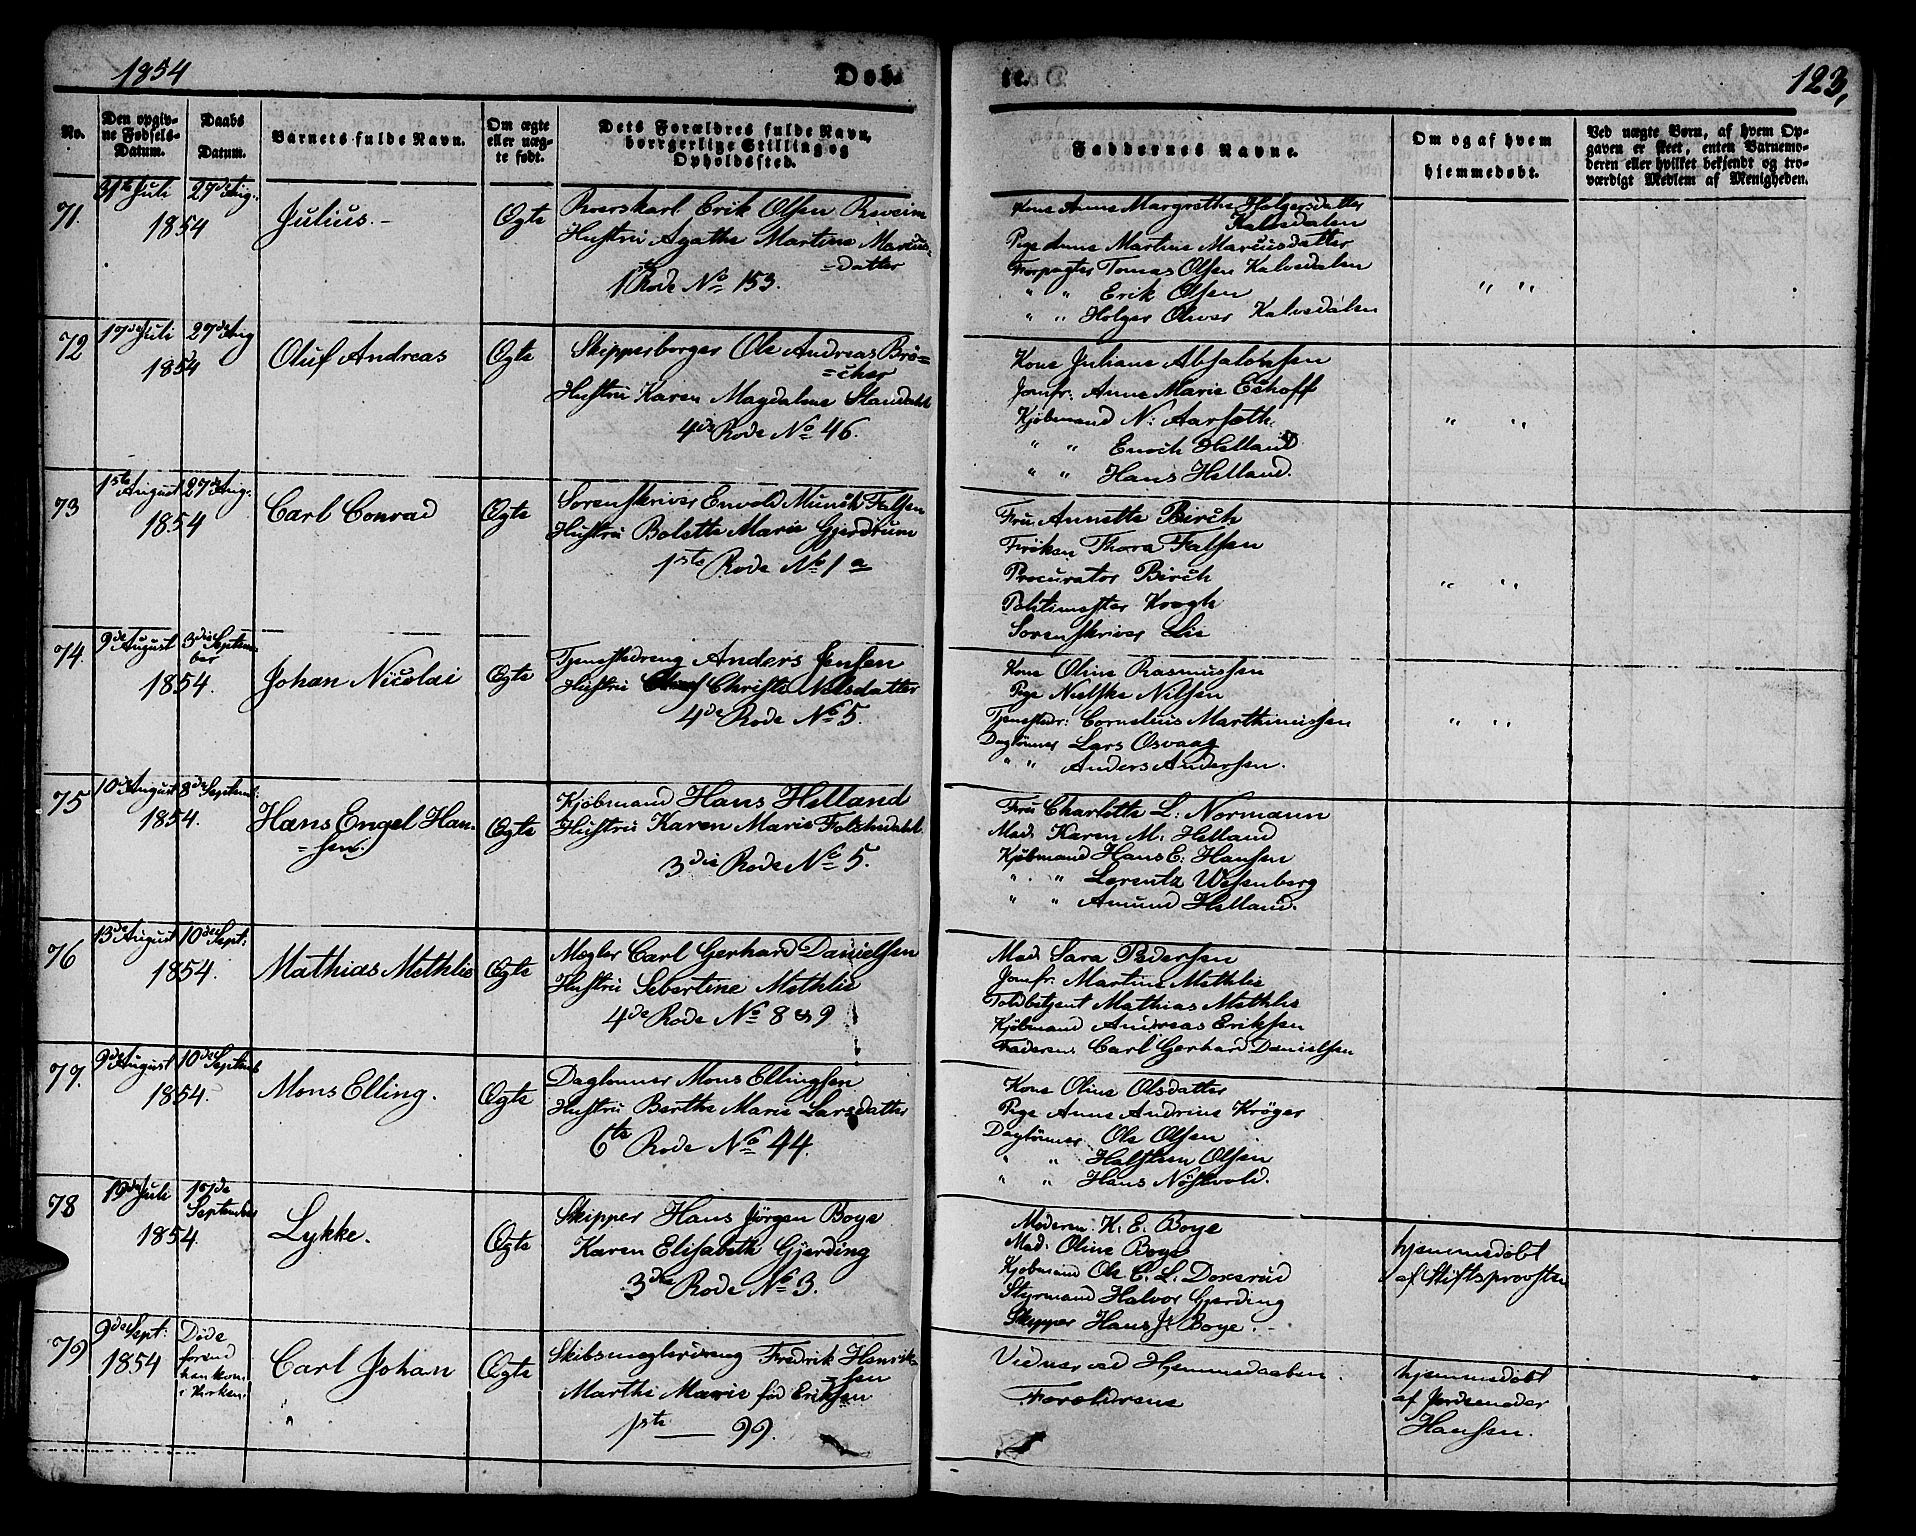 1854
Døb-
te.
123,
No.
Den opgiv-
ne Fødsels-
Datum.
Daabs
Datum.
Barnets fulde Navn.
Om ægte
eller uæg-
te født.
Dets Forældres fulde Navn,
borgerlige Stilling og
Opholdssted.
Faddernes Navne.
Om og af hvem
hjemmedøbt.
Ved uægte Børn, af hvem Op-
gaven er skeet, enten Barnemo-
deren eller hvilket bekjendt og tro-
værdigt Medlem af Menigheden.
71.
31te Juli
1854
27de Aug:
Julius.-
Ægte
Erik Olsen
Hustru Agathe Martine Marcus
=datter
1ste Rode No 153.
Kone Anne Margrethe Holgersdatter
Kalvedalen
Pige Anne Martine Marcusdatter
Forpagter Tomas Olsen Kalvedalen
" " Erik Olsen
" " Holger Olsen Kalvedalen
" "
72
17de Juli
1854
27de Aug
Oluf Andreas
Ægte
Skipperborger Ole Andreas Brö=
=cher
Hustru Karen Magdalene Standahl
4de Rode No 46.
Kone Juliane Absalonsen
Jomfr. Anne Marie Eckoff
Kjøbmand N: Aarseth.
" " Enoch Helland
" " Hans Helland.
" "
73
1ste August
1854
27de Aug:
Carl Conrad
Ægte
Sorenskriver Envold Munch Falsen
Hustru Bolette Marie Gjerdrum
1ste Rode No 1 a
Fru Annette Birch
Frøken Thora Falsen
Procurator Birch
Politimester Krogh
Sorenskriver Lie
" "
74.
9de August
1854.
3die Septem-
ber
Johan Nicolai
Ægte
Tjenestedreng Anders Jensen
Hustru Christi Nilsdatter
4de Rode No 5.
Kone Oline Rasmussen
Pige Nielske Nilsen
Tjenestedr: Cornelius Marthinussen
Daglønner Lars Osvaag
" " Anders Andersen.
" "
75
10de August
1854.
8de Septemb:
Hans Engel Han-
=sen.
Ægte
Kjøbmand Hans Helland
Hustru Karen Marie
3die Rode No 5.
Fru Charlotte L: Normann
Mad: Karen M: Helland
Kjøbmand Hans E: Hansen
" " Lorentz Wesenberg
" " Amund Helland.
76
13de August
1854.
10de Sept:
Mathias Methlie
Ægte
Mægler Carl Gerhard Danielsen
Hustru Sebertine Methlie
4de Rode No 8 & 9
Mad. Sara Pedersen
Jomfr. Martine Methlie
Toldbetjent Mathias Methlie
Kjøbmand Andreas Eriksen
Faderen Carl Gerhard Danielsen
77.
9de August
1854.
10de Septemb
Mons Elling.
Ægte
Daglønner Mons Ellingsen
Hustru Berthe Marie Larsdatter
6te Rode No 44.
Kone Oline Olsdatter
Pige Anne Andrine Krøger
Daglønner Ole Olsen
" " Halsteen Olsen
" " Hans Nøstvold.
78
19de Juli
1854.
17de
September
Lykke.
Ægte
Skipper Hans Jørgen Boye
Karen Elisabeth Gjerding
3die Rode No 3.
Moderen K. E. Boye
Mad. Oline Boye
Kjøbmand Ole C. L. Dorerud
Styrmand Halvor Gjerding
Skipper Hans J. Boye.-
hjemmedøbt
af Stiftsprovsten
79
9de Sept:
1854
Døde
forend
han kom
i Kirken.
Carl Johan
"
Ægte
Skibsmæglerdreng Fredrik Henrik-
=sen
Marthe Marie fød Eriksen
1ste — 99.
Vidner ved Hjemmedaaben.
Forældrene
hjemmedøbt
af Jordemoder
Hansen.